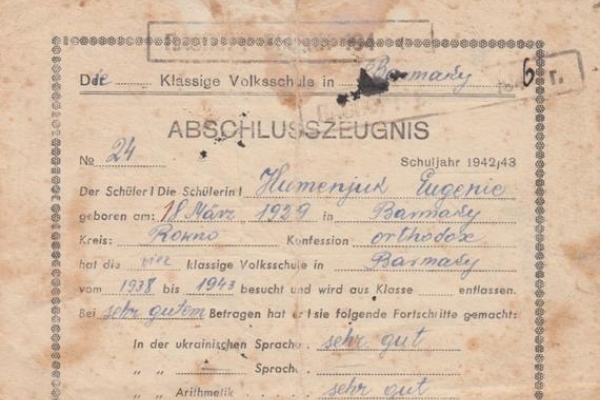 Die Klassige Volksschule in Barmaky
6 r.
ABSCHLUSSZEUGNIS
№ 24 Schuljahr 1942/43
Der Schüler I Die Schülerin I Humenjuk Eugenie
geboren am: 18 März 1929 in Barmaky
Kreis: Rowno Konfession orthodox
hat die vier klassige Volksschule in Barmaky
vom 1938 bis 1943 besucht und wird aus Klasse entlassen.
Bei sehr gutem Betragen hat er I sie folgende Fortschritte gemacht:
In der ukrainischen Sprache sehr gut
„ „ Sprache
„ „ Arithmetik sehr gut